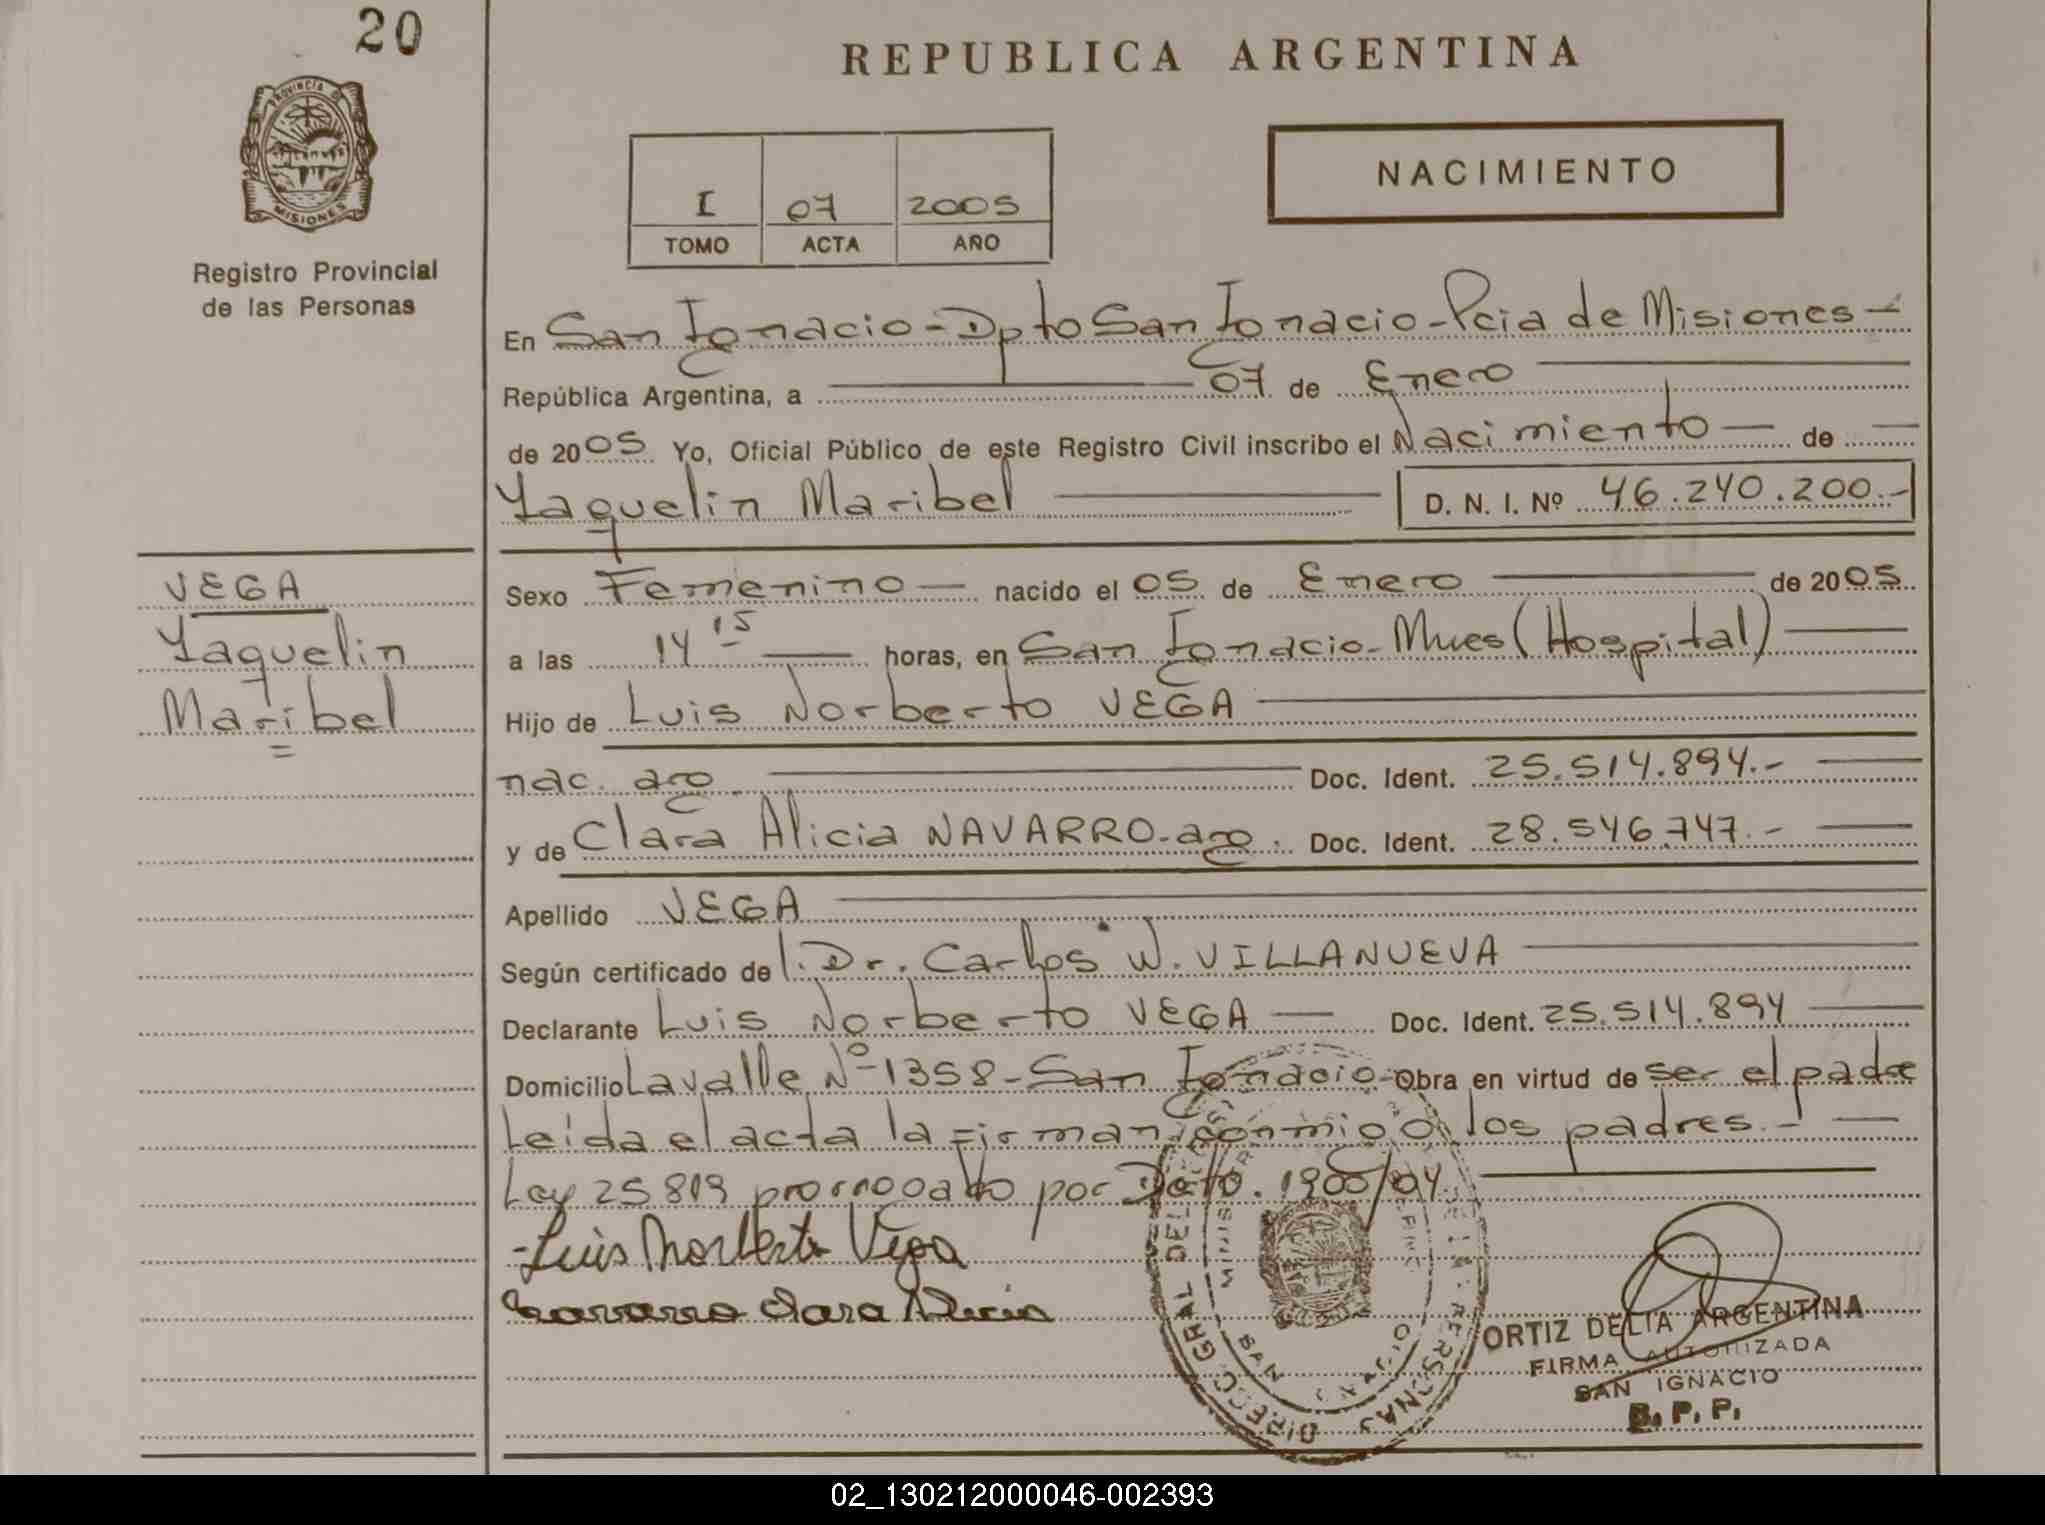 20
REPUBLICA ARGENTINA
PROVINCIA DE
MISIONES
NACIMIENTO
I 07 2005
TOMO ACTA AÑO
Registro Provincial
de las Personas
En San Ignacio - Dpto San Ignacio - Pcia de Misiones -
República Argentina, a 07 de Enero
de 2005 Yo, Oficial Público de este Registro Civil inscribo el Nacimiento de
Yaquelin Maribel D. N. I. Nº 46.240.200.-
VEGA
Yaquelin
Maribel
Sexo Femenino nacido el 05 de Enero de 2005
a las 14 15 horas, en San Ignacio - Mnes (Hospital)
Hijo de Luis Norberto VEGA
nac. arg. Doc. Ident. 25.514.894.-
y de Clara Alicia NAVARRO - arg. Doc. Ident. 28.546.747.-
Apellido VEGA
Según certificado de l. Dr. Carlos W. VILLANUEVA
Declarante Luis Norberto VEGA Doc. Ident. 25.514.894
Domicilio Lavalle Nº 1358 - San Ignacio - Obra en virtud de ser el padre
Leida el acta la firman conmigo los padres.-
Ley 25819 prorrogado por Dcto. 1900/04.
Luis Norberto Vega
Navarro Clara Alicia
DIRECC GRAL DEL PERSONAS
SAN IGNACIO
ORTIZ DELIA ARGENTINA
FIRMA AUTORIZADA
SAN IGNACIO
B. P. P.
02_130212000046-002393